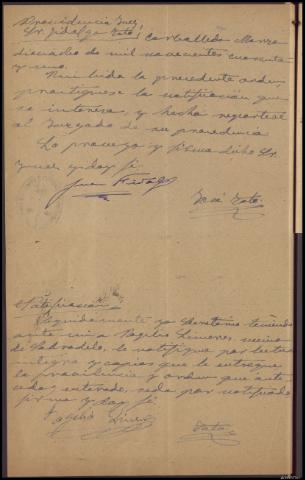 Providencia Juez
Sr. Fidalgo Tato! Carballedo Marzo
dieciocho de mil novecientos cuarenta
y uno.
Recibida la precedente orden,
practíquese la notificación que
se interesa, y hecha repórtese
al Juzgado de su procedencia
Lo proveyo y firma dicho Sr.
Juez y doy fé,
Juan Fidalgo
José Tato
Notificación
Seguidamente yo Secretario teniendo
ante mi a Rogelio, vecino
de, le notifiqué por lectura
íntegra y copias que le entregué
la providencia y orden que ante-
ceden, enterado, queda por notificado
firma y doy fé
Rogelio
Tato